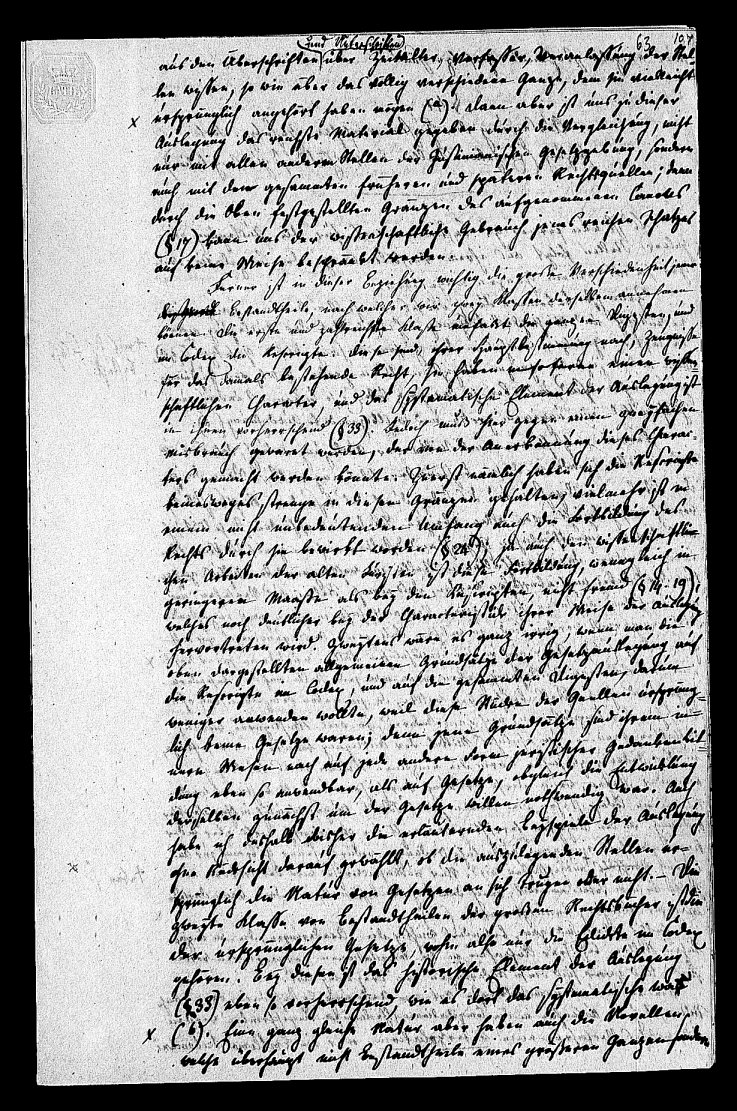 und Unterschriften
62 107
aus den Überschriften über Zeitalter, Verfasser, Veranlassung der Stel-
len wissen, so wie über das völlig verschiedene Ganze, dem sie vielleicht
ursprünglich angehört haben mögen (a). Dann aber ist uns zu dieser
Auslegung das reichste Material gegeben durch die Vergleichung, nicht
nur mit allen anderen Stellen der Justinianischen Gesetzgebung, sondern
auch mit den gesammten früheren und späteren Rechtsquellen; denn
durch die oben festgestellten Gränzen des aufgenommenen Canons
(§ 17) kann uns der wissenschaftliche Gebrauch jenes reichen Schatzes
auf keine Weise beschränkt werden.
Ferner ist in dieser Beziehung wichtig die große Verschiedenheit jener
Bestandtheile, nach welcher wir zwey Klassen derselben annehmen
können. Die erste und zahlreichste Klasse umfaßt die ganzen Digesten, und
im Codex die Rescripte. Diese sind, ihrer Hauptbestimmung nach, Zeugnisse
für das damals bestehende Recht, sie haben insofern einen wissen-
schaftlichen Character, und das systematische Element der Auslegung ist
in ihnen vorherrschend (§ 33). Jedoch muß hier gegen einen zweyfachen
Misbrauch gewarnt werden, der von der Anerkennung dieses Charac-
ters gemacht werden könnte. Zuerst nämlich haben sich die Rescripte
keinesweges strenge in diesen Gränzen gehalten, vielmehr ist in
einem nicht unbedeutenden Umfang auch die Fortbildung des
Rechts durch sie bewirkt worden (§ 24); ja auch den wissenschaftli-
chen Arbeiten der alten Juristen ist diese Fortbildung, wenn gleich in
geringerem Maaße als bey den Rescripten, nicht fremd (§ 14. 19),
welches noch deutlicher bey der Characteristik ihrer Weise der Auslegung
hervortreten wird. Zweytens wäre es ganz irrig, wenn man die
oben dargestellten allgemeinen Grundsätze der Gesetzauslegung auf
die Rescripte im Codex, und auf die gesammten Digesten, darum
weniger anwenden wollte, weil diese Stücke der Quellen ursprüng-
lich keine Gesetze waren; denn jene Grundsätze sind ihrem in-
nern Wesen nach auf jede andere Form juristischer Gedankenbil-
dung eben so anwendbar, als auf Gesetze, obgleich die Entwicklung
derselben zunächst um der Gesetze willen nothwendig war. Auch
habe ich deshalb bisher die erläuternden Beyspiele der Auslegung
ohne Rücksicht darauf gewählt, ob die auszulegenden Stellen ur-
sprünglich die Natur von Gesetzen an sich trugen oder nicht. – Die
zweyte Klasse von Bestandtheilen der großen Rechtsbücher ist die
der ursprünglichen Gesetze, wohin also nur die Edicte im Codex
gehören. Bey diesen ist das historische Element der Auslegung
(§ 33) eben so vorherrschend, wie es dort das systematische war
(b). Eine ganz gleiche Natur aber haben auch die Novellen,
welche überhaupt nicht Bestandtheile eines größeren Ganzen sondern